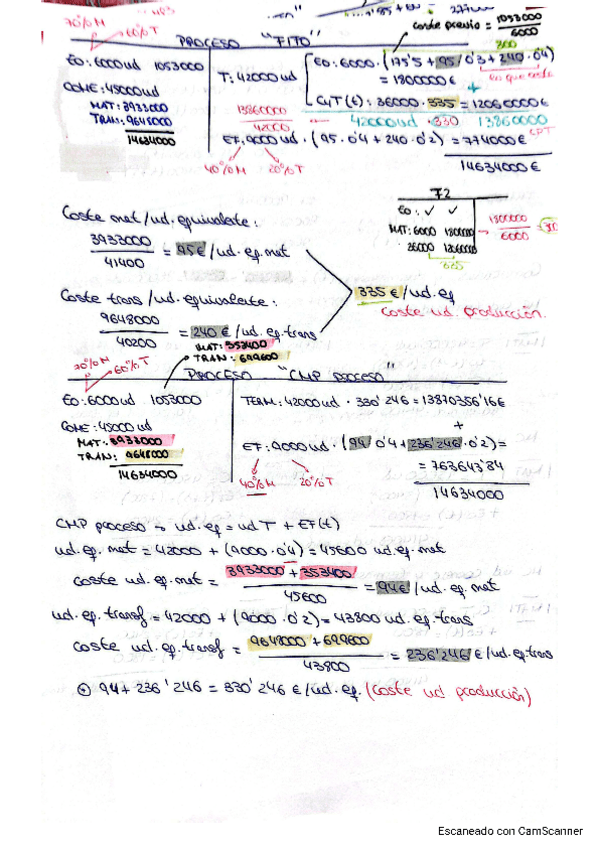 70%M
60%T
coste previo = 1053000 / 6000
300
PROCESO "FITO"
EO: 6000ud 1053000
COME: 45000ud
MAT: 3933000
TRAN: 9648000
14634000
T: 42000ud
EO: 6000 · (175'5 + 95 · 0'3 + 240 · 0'4)
= 1800000 €
+
C4T(t): 36000 · 335 = 12060000€
13860000 / 42000
42000ud · 330 13860000
EF: 9000ud · (95 · 0'4 + 240 · 0'2) = 774000€
40%M 20%T
14634000 €
EO: ✓ ✓
MAT: 6000 1800000
1800000 / 6000
335
Coste mat/ud. equivalente:
3933000 / 41400 = 95€/ud. eq. mat
Coste trans/ud. equivalente:
9648000 / 40200 = 240€/ud. eq. trans
335 €/ud. eq
coste ud. producción.
MAT: 353400
TRAN: 699600
70%M
60%T
PROCESO "CMP PROCESO"
EO: 6000ud 1053000
COME: 45000ud
MAT: 3933000
TRAN: 9648000
14634000
TERM: 42000ud · 330'246 = 13870356'16€
+
EF: 9000ud · (94 · 0'4 + 236'246 · 0'2) =
40%M 20%T
= 763643'84
14634000
CMP proceso → ud. eq = ud T + EF(t)
ud. eq. mat = 42000 + (9000 · 0'4) = 45600 ud. eq. mat
coste ud. eq. mat = 3933000 + 353400 / 45600 = 94€/ud. eq. mat
ud. eq. transf = 42000 + (9000 · 0'2) = 43800 ud. eq. trans
coste ud. eq. transf = 9648000 + 699600 / 43800 = 236'246 €/ud. eq. trans
94 + 236'246 = 330'246 €/ud. eq. (coste ud producción)
Escaneado con CamScanner